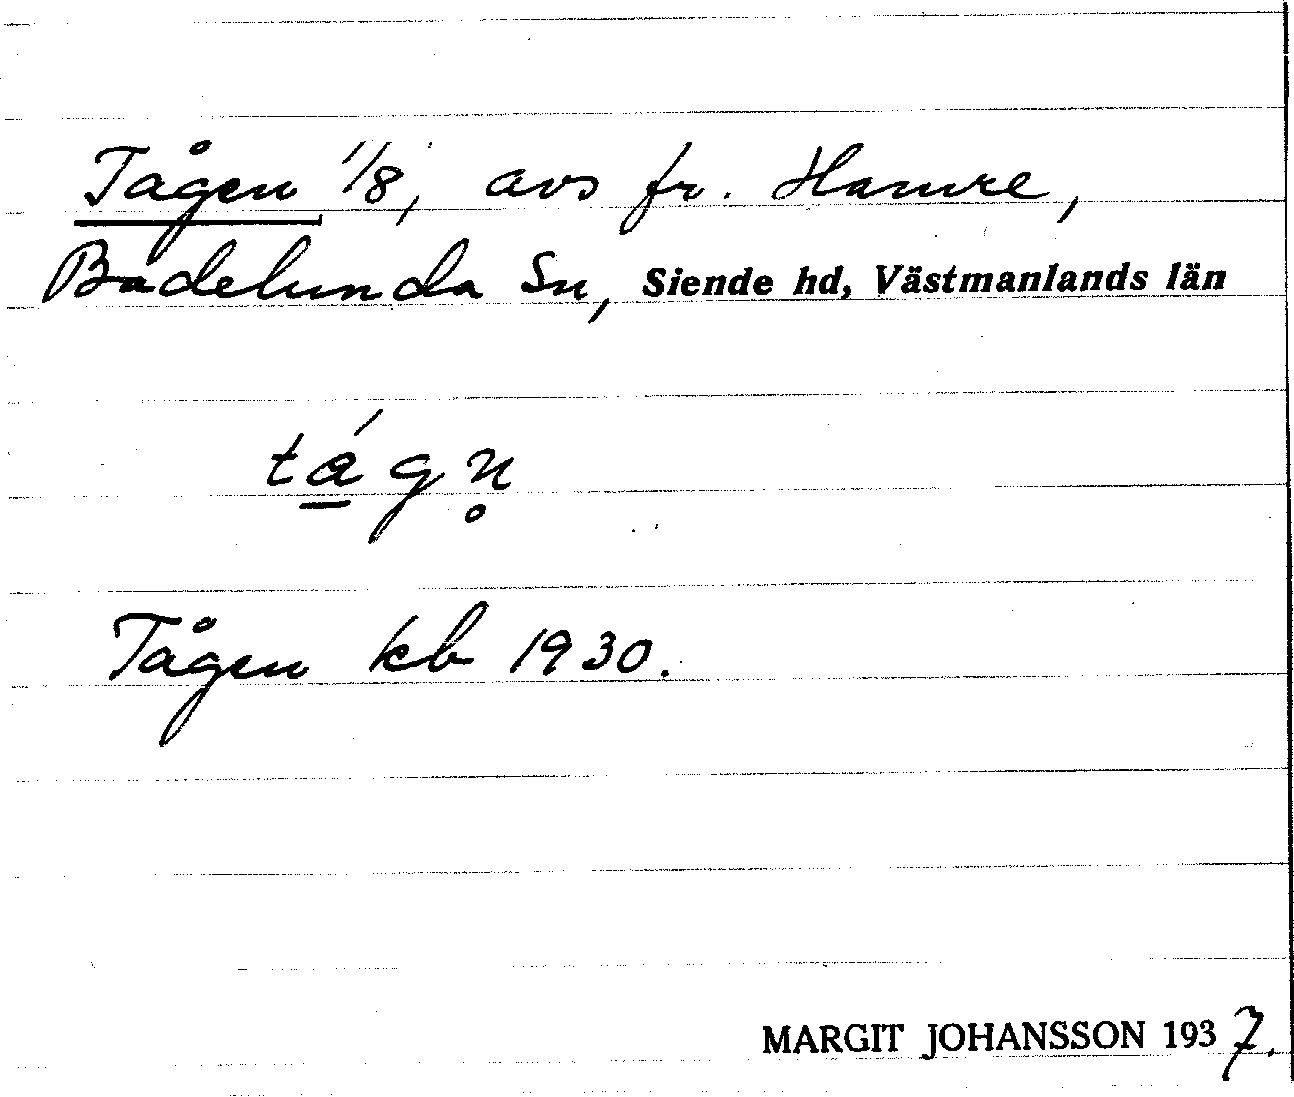 Tågen 1/8, avs fr. Hamre,
Badelunda Sn, Siende hd, Västmanlands län
tág̲n̥
Tågen kb 1930.
MARGIT JOHANSSON 1937.